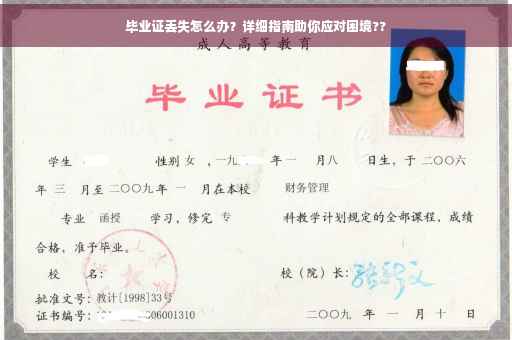 毕业证丢失怎么办？详细指南助你应对困境??
成人高等教育
毕业证书
学生 性别 女 ，一九 年 一 月八 日生，于 二〇〇六
年 三 月至 二〇〇九 年 一 月在本校 财务管理
专业 函授 学习，修完 专 科教学计划规定的全部课程，成绩
合格，准予毕业。
校 名： 校（院）长：
批准文号：教计[1998]33号
证书编号： 06001310 二〇〇九 年 一 月 十 日